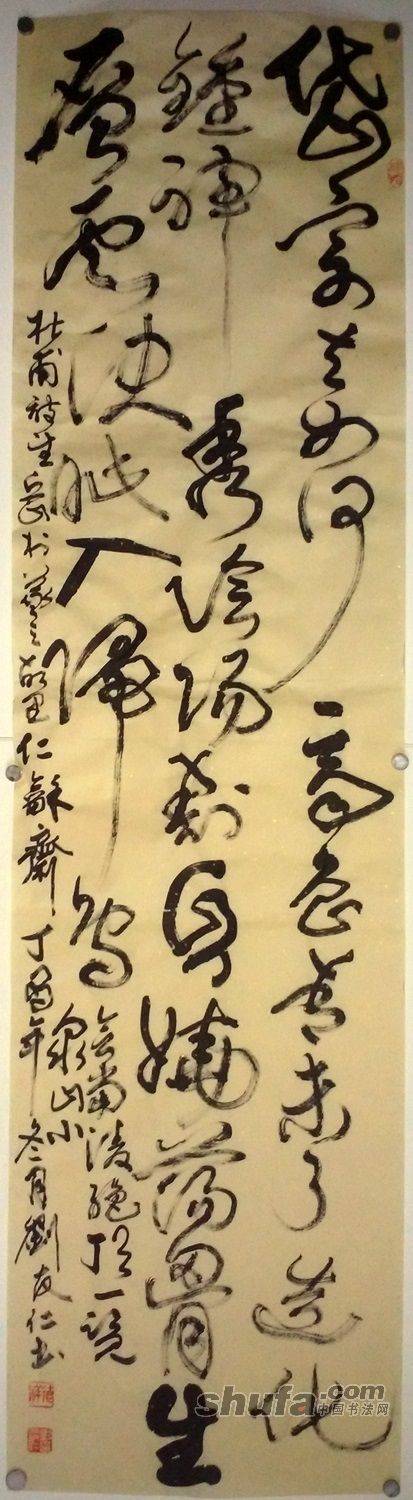 岱宗夫如何齊魯青未了造化
鍾神秀陰陽割昏曉蕩胷生
層雲決眦入歸鳥會當凌絶頂一覽
衆山小
杜甫詩望岳於羲之故里仁龢齋丁酉年冬月劉友仁書
shufa.com
中国书法网